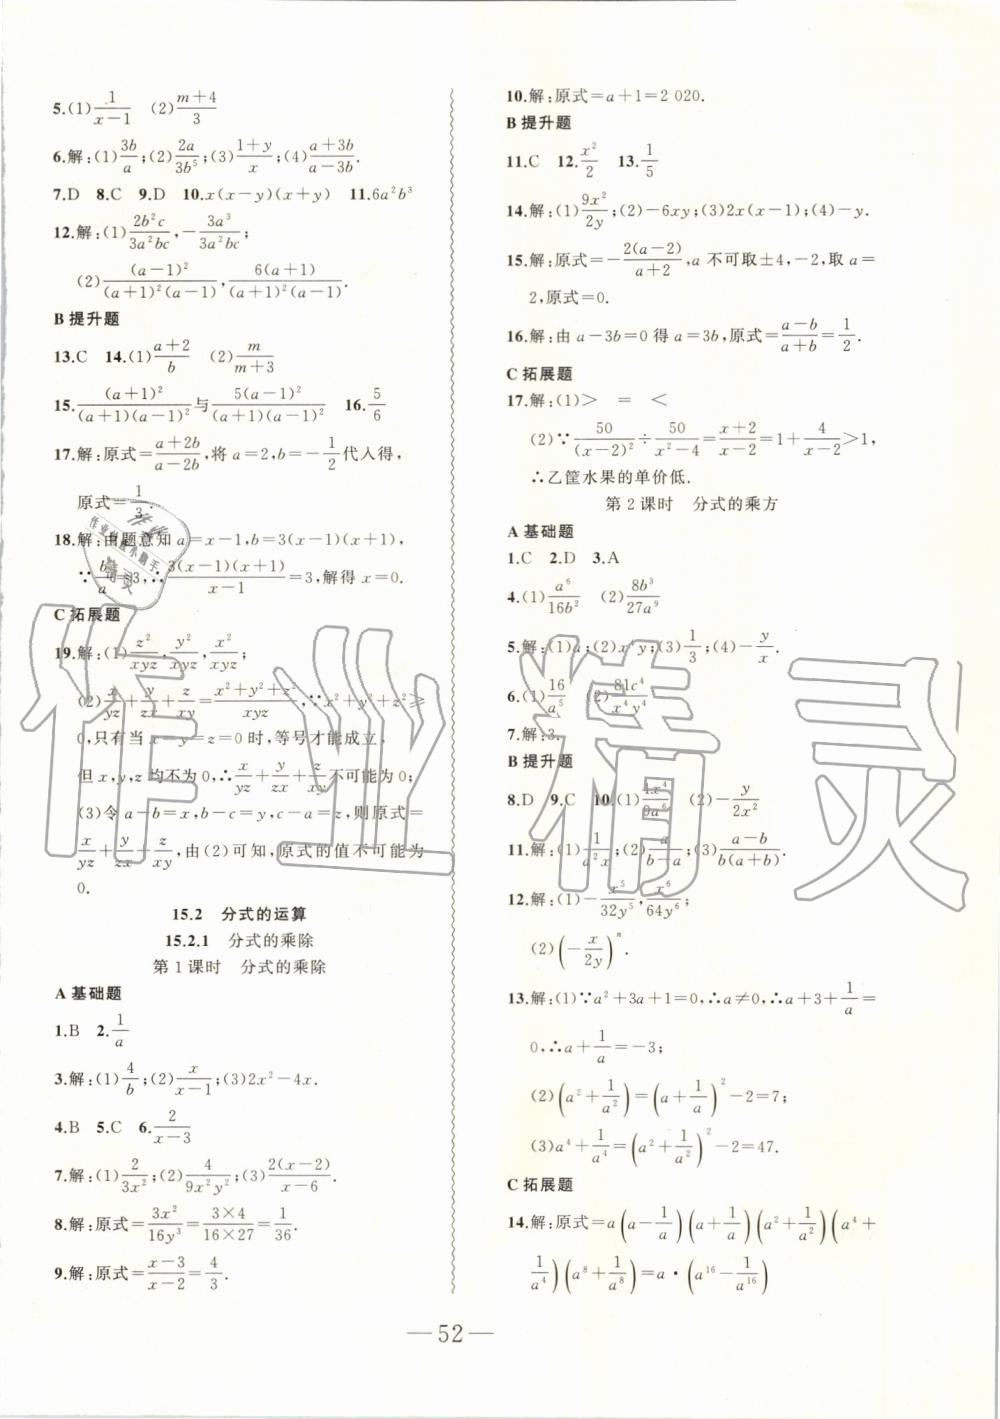 5.(1)1/(x−1) (2)(m+4)/3
6.解:(1)3b/a;(2)2a/3b⁵;(3)(1+y)/x;(4)(a+3b)/(a−3b).
7.D 8.C 9.D 10.x(x−y)(x+y) 11.6a²b³
12.解:(1)2b²c/3a²bc,−3a³/3a²bc;
(2)(a−1)²/((a+1)²(a−1)),6(a+1)/((a+1)²(a−1)).
B 提升题
13.C 14.(1)(a+2)/b (2)m/(m+3)
15.(a+1)²/((a+1)(a−1)²)与5(a−1)²/((a+1)(a−1)²) 16.5/6
17.解:原式=(a+2b)/(a−2b),将 a=2,b=−1/2代入得,
原式=1/3.
18.解:由题意知 a=x−1,b=3(x−1)(x+1),
∵b/a=3,∴3(x−1)(x+1)/(x−1)=3,解得 x=0.
C 拓展题
19.解:(1)z²/xyz,y²/xyz,x²/xyz;
(2)x/yz+y/zx+z/xy=(x²+y²+z²)/xyz,∵x²+y²+z²≥
0,只有当 x=y=z=0 时,等号才能成立,
但 x,y,z 均不为 0,∴x/yz+y/zx+z/xy不可能为 0;
(3)令 a−b=x,b−c=y,c−a=z,则原式=
x/yz+y/zx+z/xy,由(2)可知,原式的值不可能为
0.
15.2 分式的运算
15.2.1 分式的乘除
第 1 课时 分式的乘除
A 基础题
1.B 2.1/a
3.解:(1)4/b;(2)x/(x−1);(3)2x²−4x.
4.B 5.C 6.2/(x−3)
7.解:(1)2/3x²;(2)4/9x²y²;(3)2(x−2)/(x−6).
8.解:原式=3x²/16y³=(3×4)/(16×27)=1/36.
9.解:原式=(x−3)/(x−2)=4/3.
10.解:原式=a+1=2 020.
B 提升题
11.C 12.x²/2 13.1/5
14.解:(1)9x²/2y;(2)−6xy;(3)2x(x−1);(4)−y.
15.解:原式=−2(a−2)/(a+2),a 不可取±4,−2,取 a=
2,原式=0.
16.解:由 a−3b=0 得 a=3b,原式=(a−b)/(a+b)=1/2.
C 拓展题
17.解:(1)> = <
(2)∵50/(x−2)²÷50/(x²−4)=(x+2)/(x−2)=1+4/(x−2)>1,
∴乙筐水果的单价低.
第 2 课时 分式的乘方
A 基础题
1.C 2.D 3.A
4.(1)a⁶/16b² (2)8b³/27a⁹
5.解:(1)a;(2)x⁴y;(3)1/3;(4)−y/x.
6.(1)16/a⁵ (2)81c⁴/x⁴y⁴
7.解:3.
B 提升题
8.D 9.C 10.(1)4x⁴/9a⁶ (2)−y/2x²
11.解:(1)1/a²x;(2)a/(b−a);(3)(a−b)/(b(a+b)).
12.解:(1)−x⁵/32y⁵,x⁶/64y⁶;
(2)(−x/2y)ⁿ.
13.解:(1)∵a²+3a+1=0,∴a≠0,∴a+3+1/a=
0,∴a+1/a=−3;
(2)(a²+1/a²)=(a+1/a)²−2=7;
(3)a⁴+1/a⁴=(a²+1/a²)²−2=47.
C 拓展题
14.解:原式=a(a−1/a)(a+1/a)(a²+1/a²)(a⁴+
1/a⁴)(a⁸+1/a⁸)=a·(a¹⁶−1/a¹⁶)
—52—
作业精灵